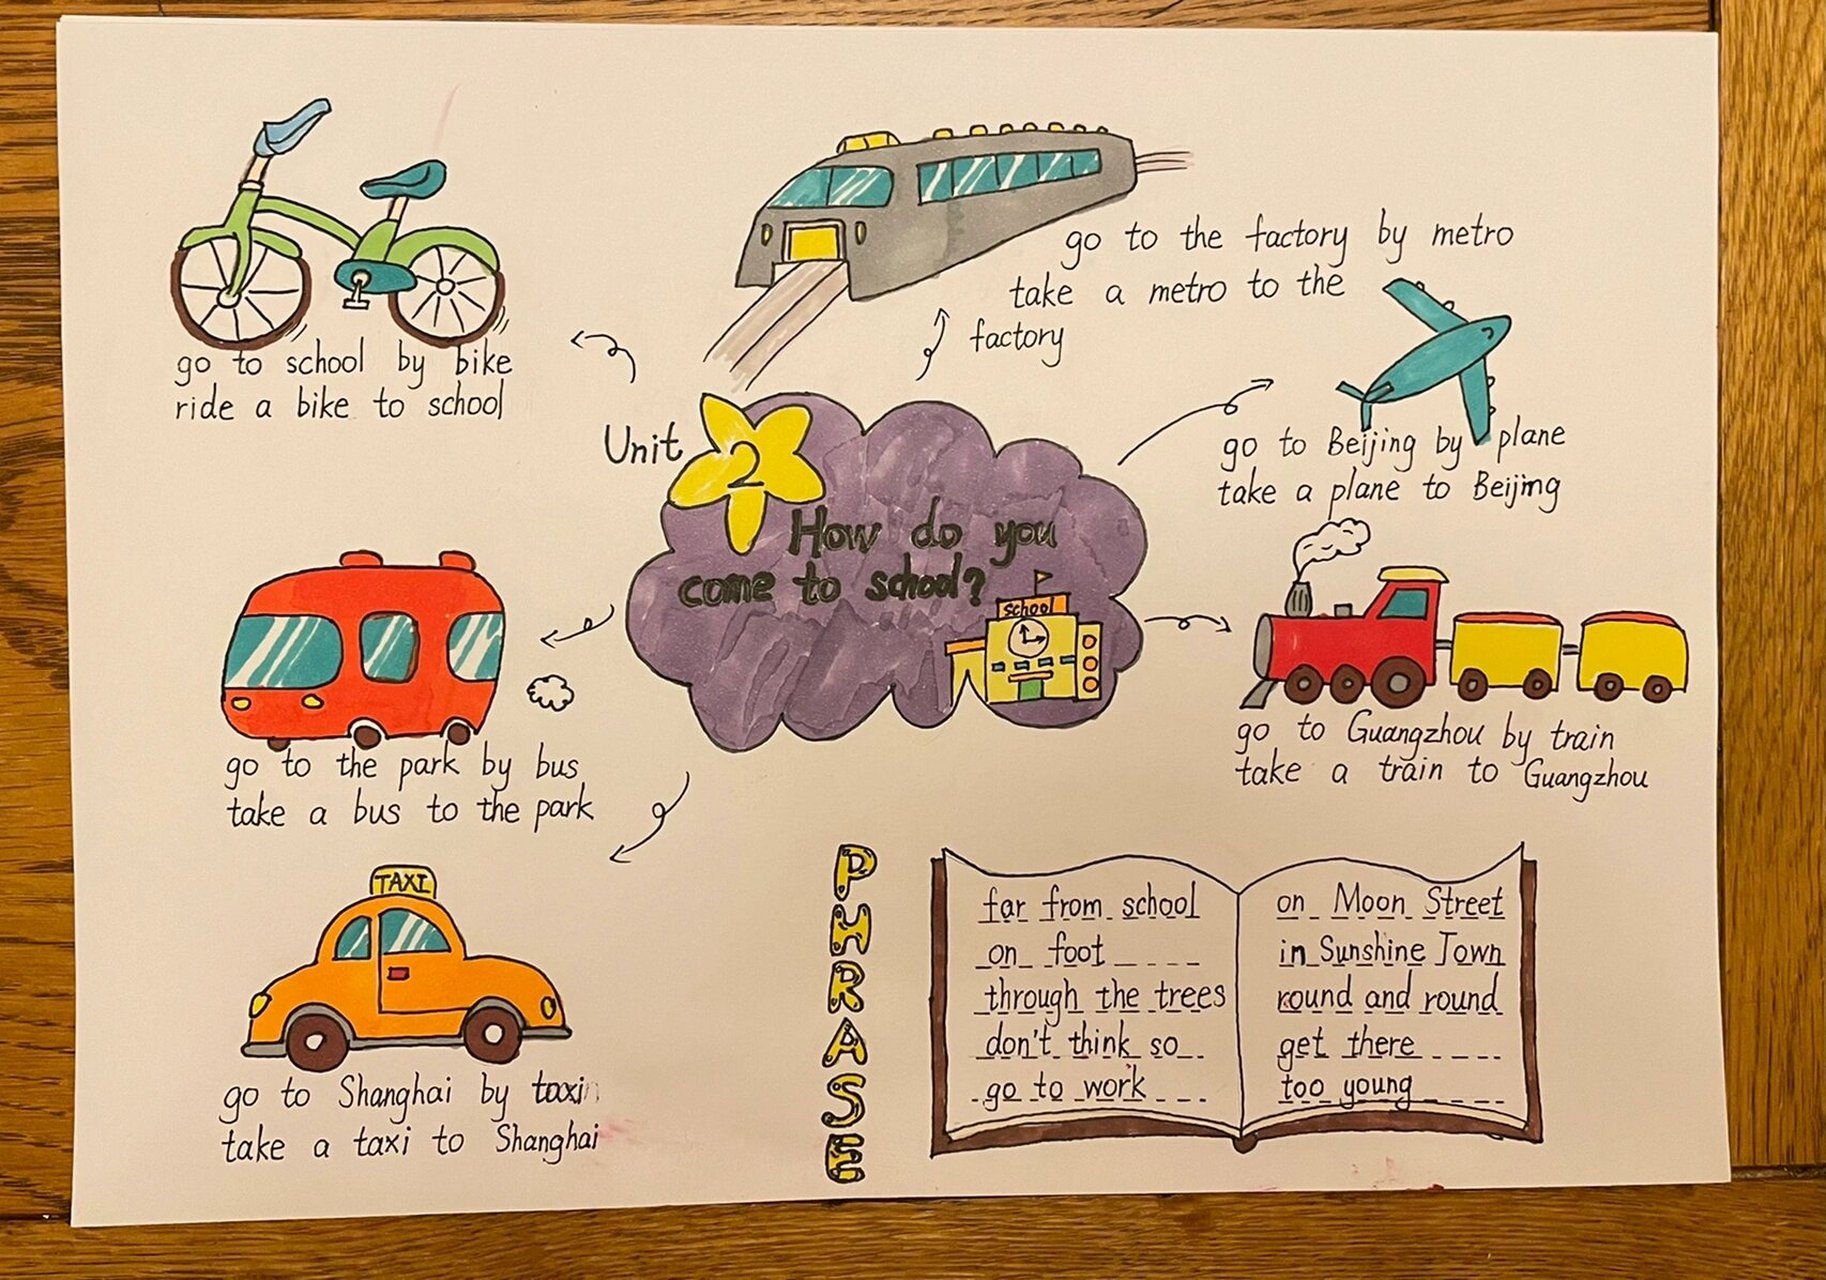 go to school by bike
ride a bike to school
go to the factory by metro
take a metro to the
factory
go to Beijing by plane
take a plane to Beijing
Unit 2
How do you
come to school?
School
go to the park by bus
take a bus to the park
go to Guangzhou by train
take a train to Guangzhou
TAXI
go to Shanghai by taxi
take a taxi to Shanghai
PHRASE
far from school
on foot
through the trees
don't think so
go to work
on Moon Street
in Sunshine Town
round and round
get there
too young